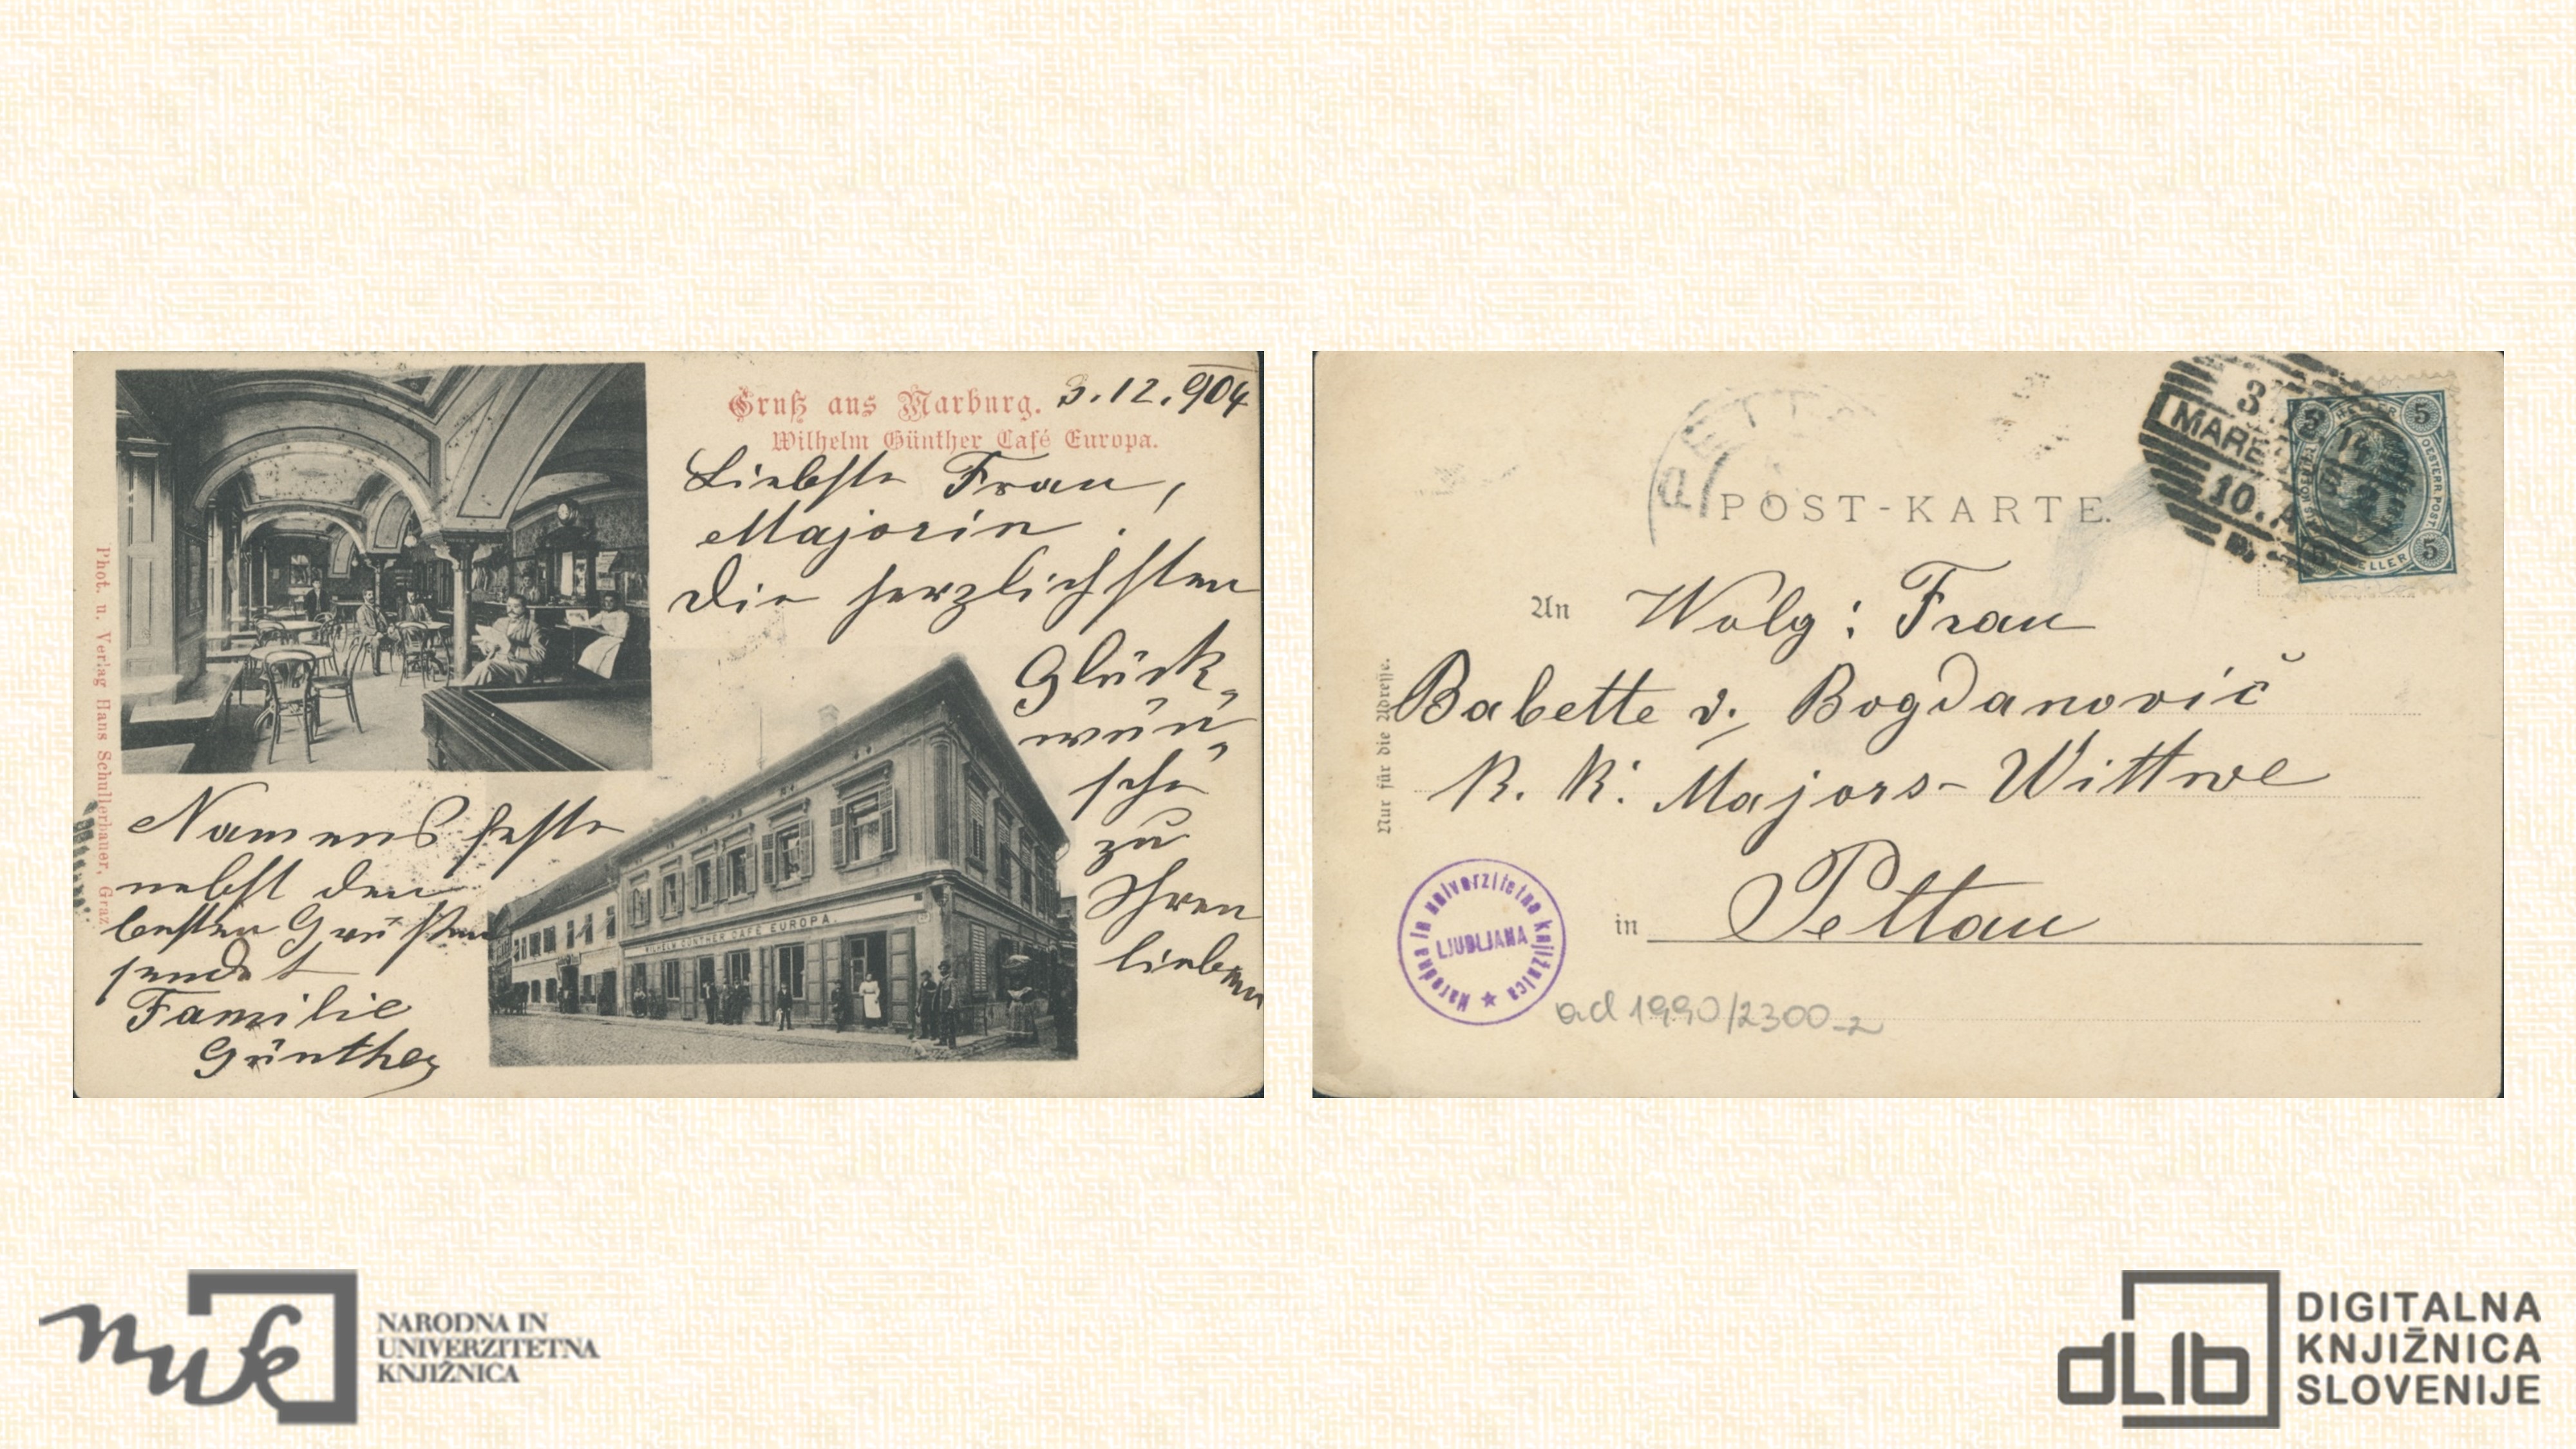 Gruß aus Marburg. 3.12.904
Wilhelm Günther Café Europa.
Liebste Frau,
Majorin.
Die herzlichsten
Glück-
wün-
sche
zu
Ihren
lieben
Namensfeste
nebst den
besten Grüßen
sendet
Familie
Günther
WILHELM GÜNTHER CAFÉ EUROPA.
Phot. u. Verlag Hans Schullerbauer, Graz
PETT
POST-KARTE.
3
MARB
10.A
14
5 HELLER 5
OESTERR. POST
HELLER 5
An Wolg: Frau
Babette v. Bogdanovič
K. K. Majors-Wittwe
in Pettau
Nur für die Adresse.
Narodna in univerzitetna knjižnica
LJUBLJANA
ad 1990/2300-2
nuk
NARODNA IN
UNIVERZITETNA
KNJIŽNICA
dLib
DIGITALNA
KNJIŽNICA
SLOVENIJE